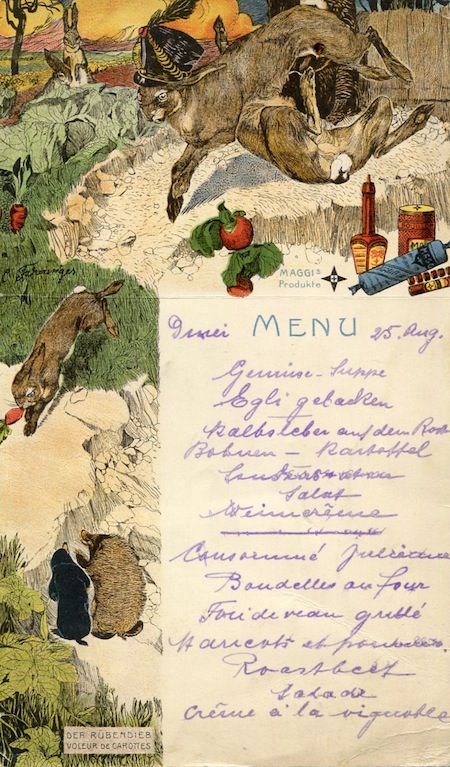 MAGGIs
Produkte
MENU
25. Aug.
Gemüse-Suppe
Egli gebacken
Kalbsleber auf den Rost
Bohnen - Kartoffel
Salat
Weincrême
Consommé Julienne
Bondelles au four
Foie de veau grillé
Haricots et pommes.
Roastbeef
Salade
Crême à la vignoble
DER RÜBENDIEB
VOLEUR DE CAROTTES